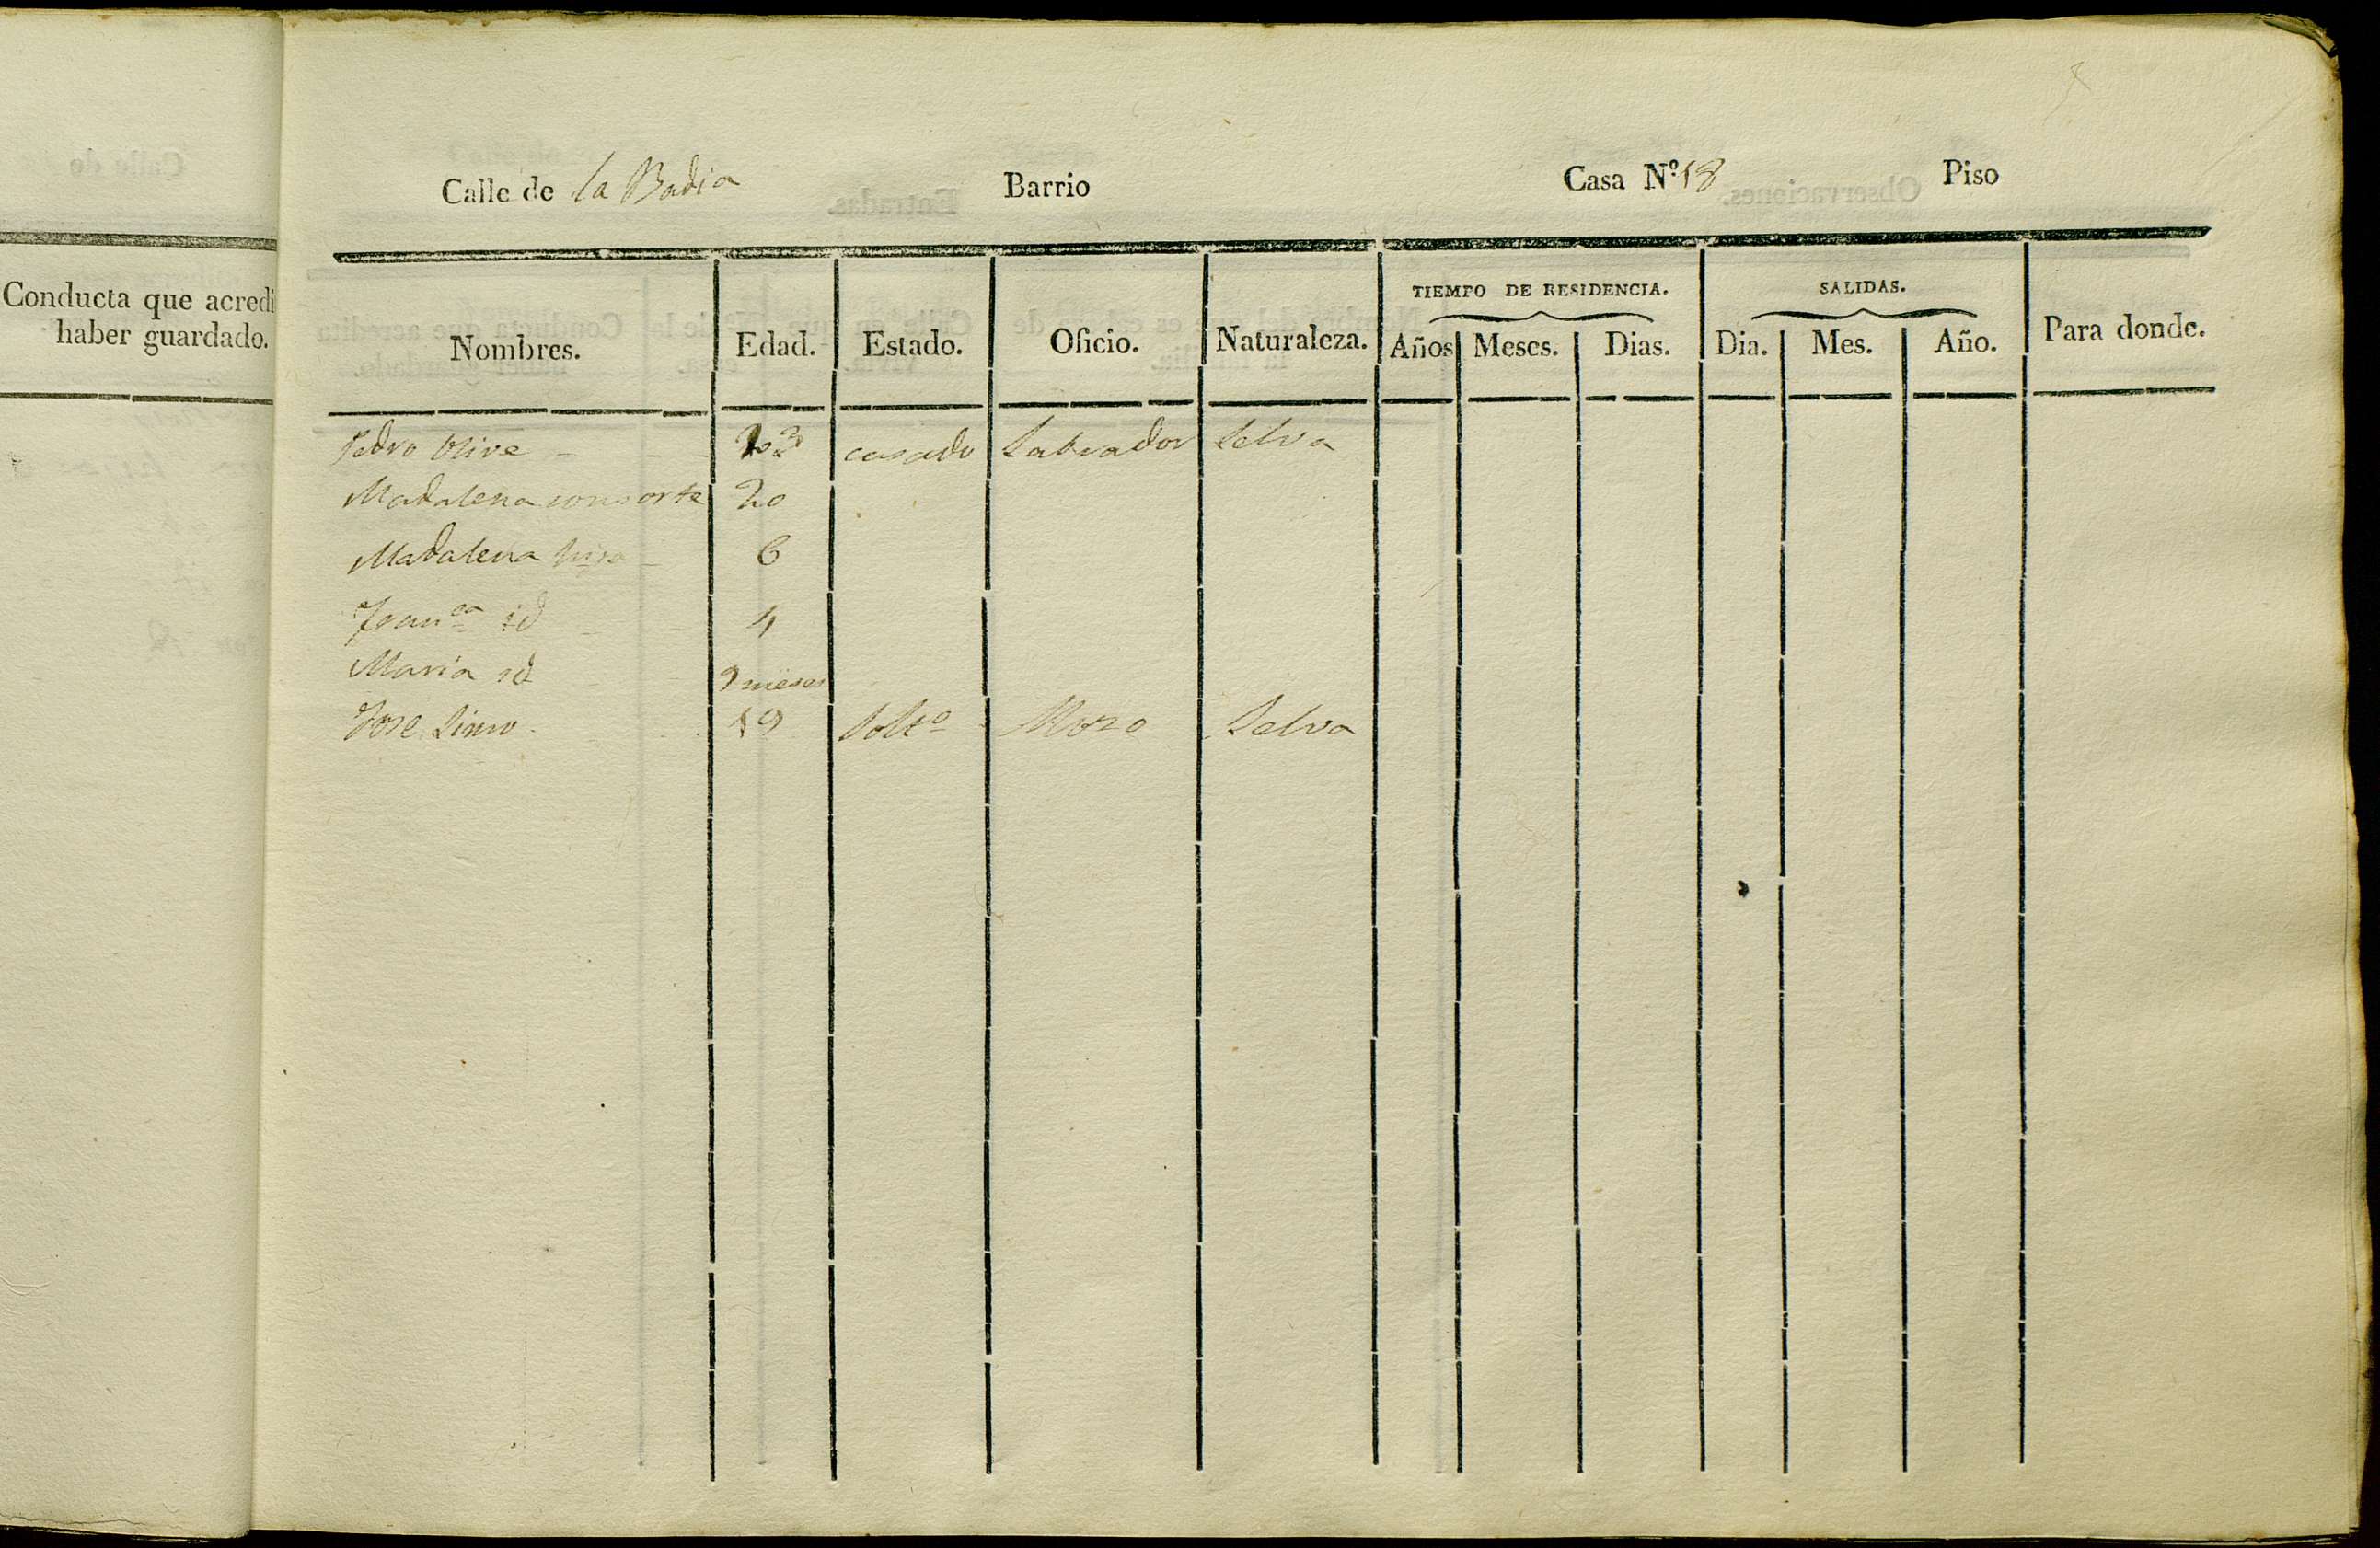 Conducta que acredi
haber guardado.
Calle de la Badia Barrio Casa Nº 18 Piso
TIEMPO DE RESIDENCIA. SALIDAS.
Nombres. Edad. Estado. Oficio. Naturaleza. Años Meses. Dias. Dia. Mes. Año. Para donde.
Pedro Olive casado Labrador Selva
Madalena consorte 20
Madalena hija 6
Franca id 4
Maria id 9 meses
Jose 19 Solto Mozo Selva